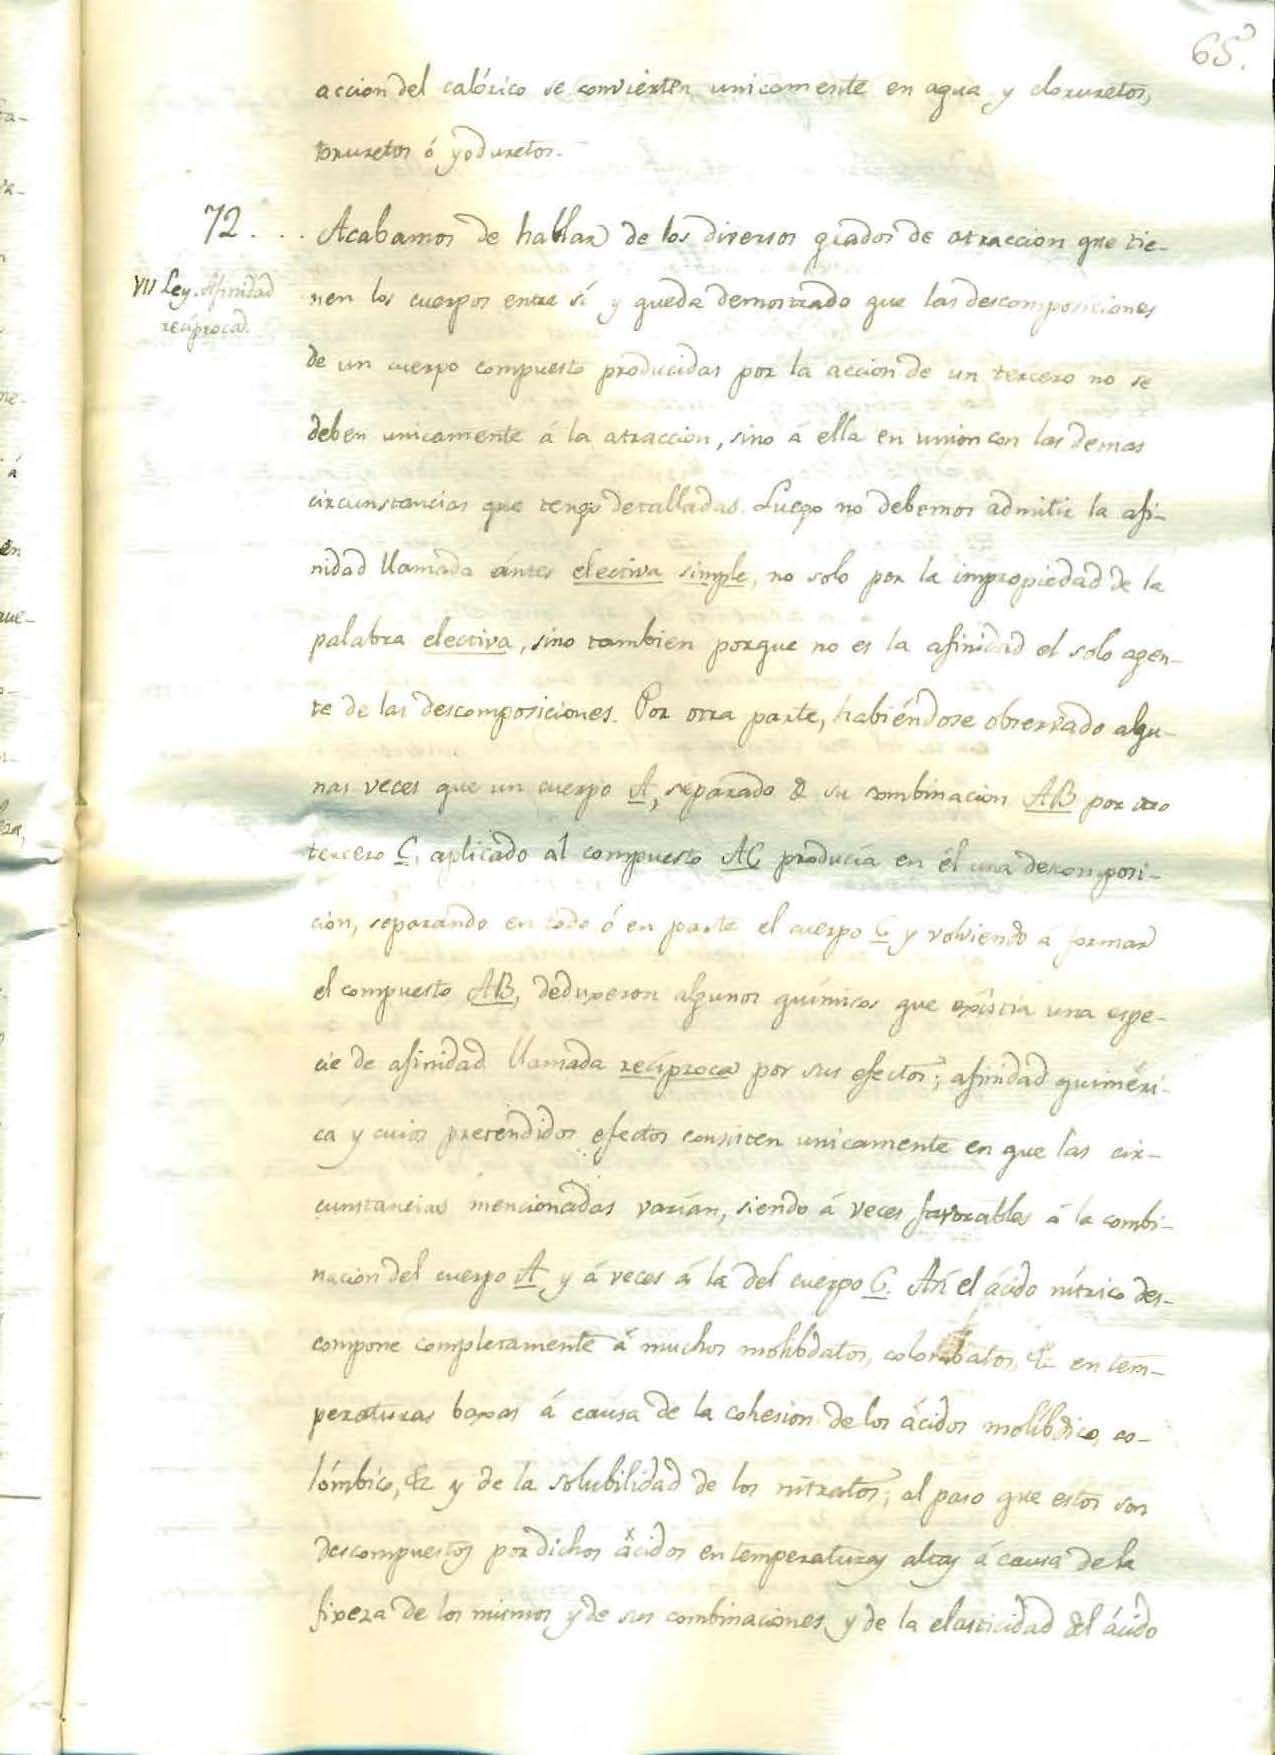 65.
accion del calórico se convierten unicamente en agua y cloruretos,
bruretos ó yoduretos.
72 . . . Acabamos de hablar de los diversos grados de atraccion que tie-
VII Ley. Afinidad
recíproca.
nen los cuerpos entre sí y queda demostrado que las descomposiciones
de un cuerpo compuesto producidas por la accion de un tercero no se
deben unicamente á la atraccion, sino á ella en union con las demas
circunstancias que tengo detalladas. Luego no debemos admitir la afi-
nidad llamada ántes electiva simple, no solo por la impropiedad de la
palabra electiva, sino tambien porque no es la afinidad el solo agen-
te de las descomposiciones. Por otra parte, habiéndose observado algu-
nas veces que un cuerpo A, separado de su combinacion AB por otro
tercero C, aplicado al compuesto AC producía en él una descomposi-
cion, separando en todo ó en parte el cuerpo C y volviendo á formar
el compuesto AB, deduxeron algunos químicos que existía una espe-
cie de afinidad llamada recíproca por sus efectos; afinidad quiméri-
ca y cuios pretendidos efectos consisten unicamente en que las cir-
cunstancias mencionadas varían, siendo á veces favorables á la combi-
nacion del cuerpo A y á veces á la del cuerpo C. Así el ácido nítrico des-
compone completamente á muchos molibdatos, colombatos, &c en tem-
peraturas baxas á causa de la cohesion de los ácidos molíbdico, co-
lómbico, &c y de la solubilidad de los nitratos; al paso que estos son
descompuestos por dichos ácidos en temperaturas altas á causa de la
fixeza de los mismos y de sus combinaciones y de la elasticidad del ácido